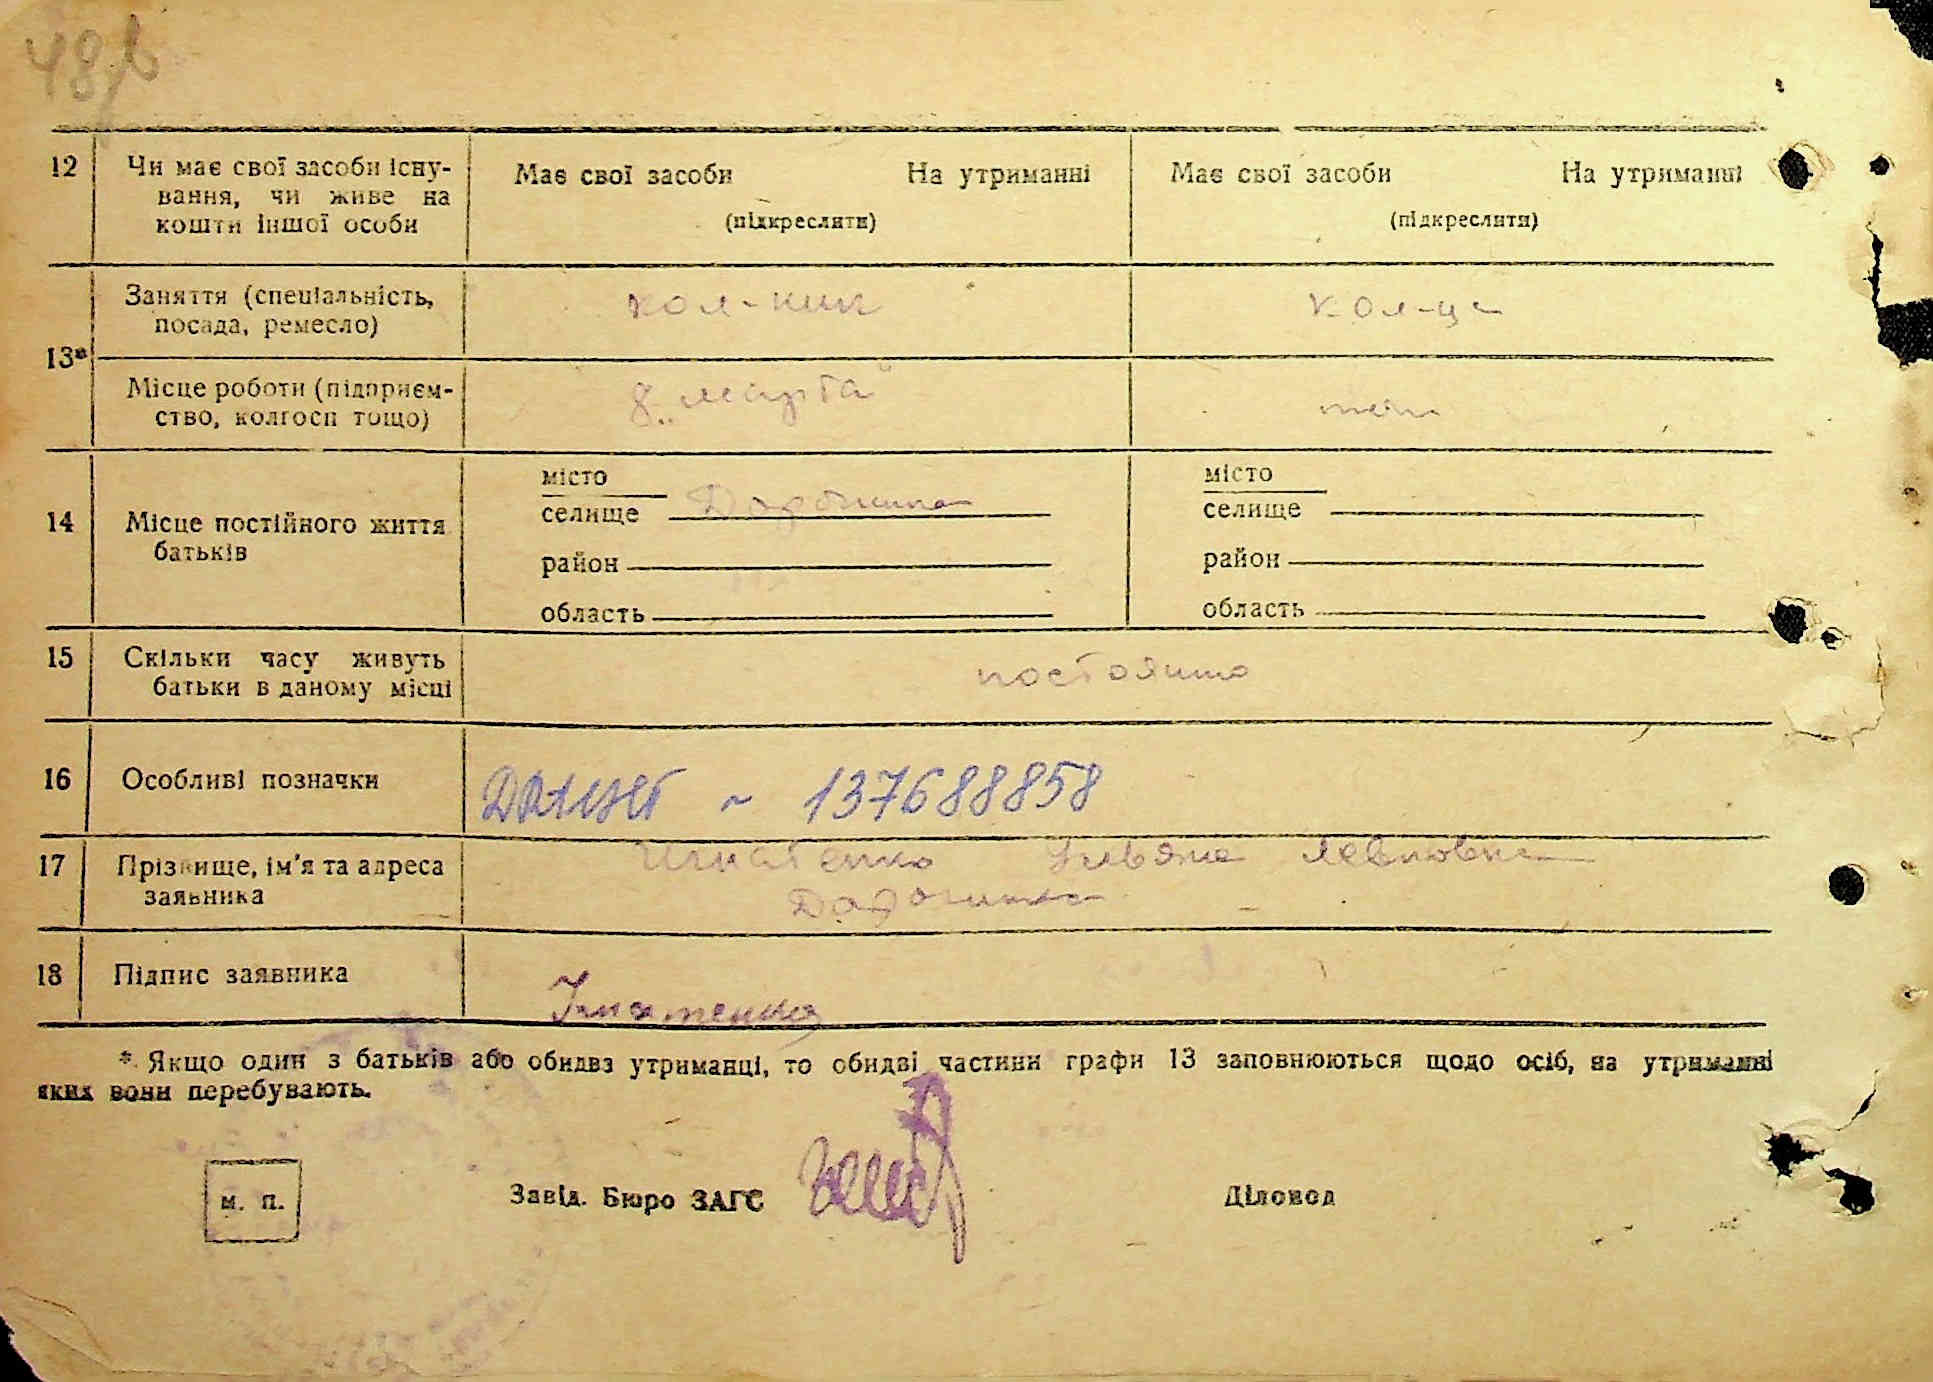 12 Чи має свої засоби існу-
вання, чи живе на
кошти іншої особи
Має свої засоби На утриманні
(підкреслити)
Має свої засоби На утриманні
(підкреслити)
13*
Заняття (спеціальність,
посада, ремесло)
кол-ник
кол-ца
Місце роботи (підприєм-
ство, колгосп тощо)
8 "марта"
14 Місце постійного життя
батьків
місто
селище
район
область
місто
селище
район
область
15 Скільки часу живуть
батьки в даному місці
постоянно
16 Особливі позначки
137688858
17 Прізвище, ім'я та адреса
заявника
Игнатенко Ульяна
18 Підпис заявника
Игнатенко
* Якщо один з батьків або обидва утриманці, то обидві частини графи 13 заповнюються щодо осіб, на утриманні
яких вони перебувають.
м. п.
Завід. Бюро ЗАГС
Діловод